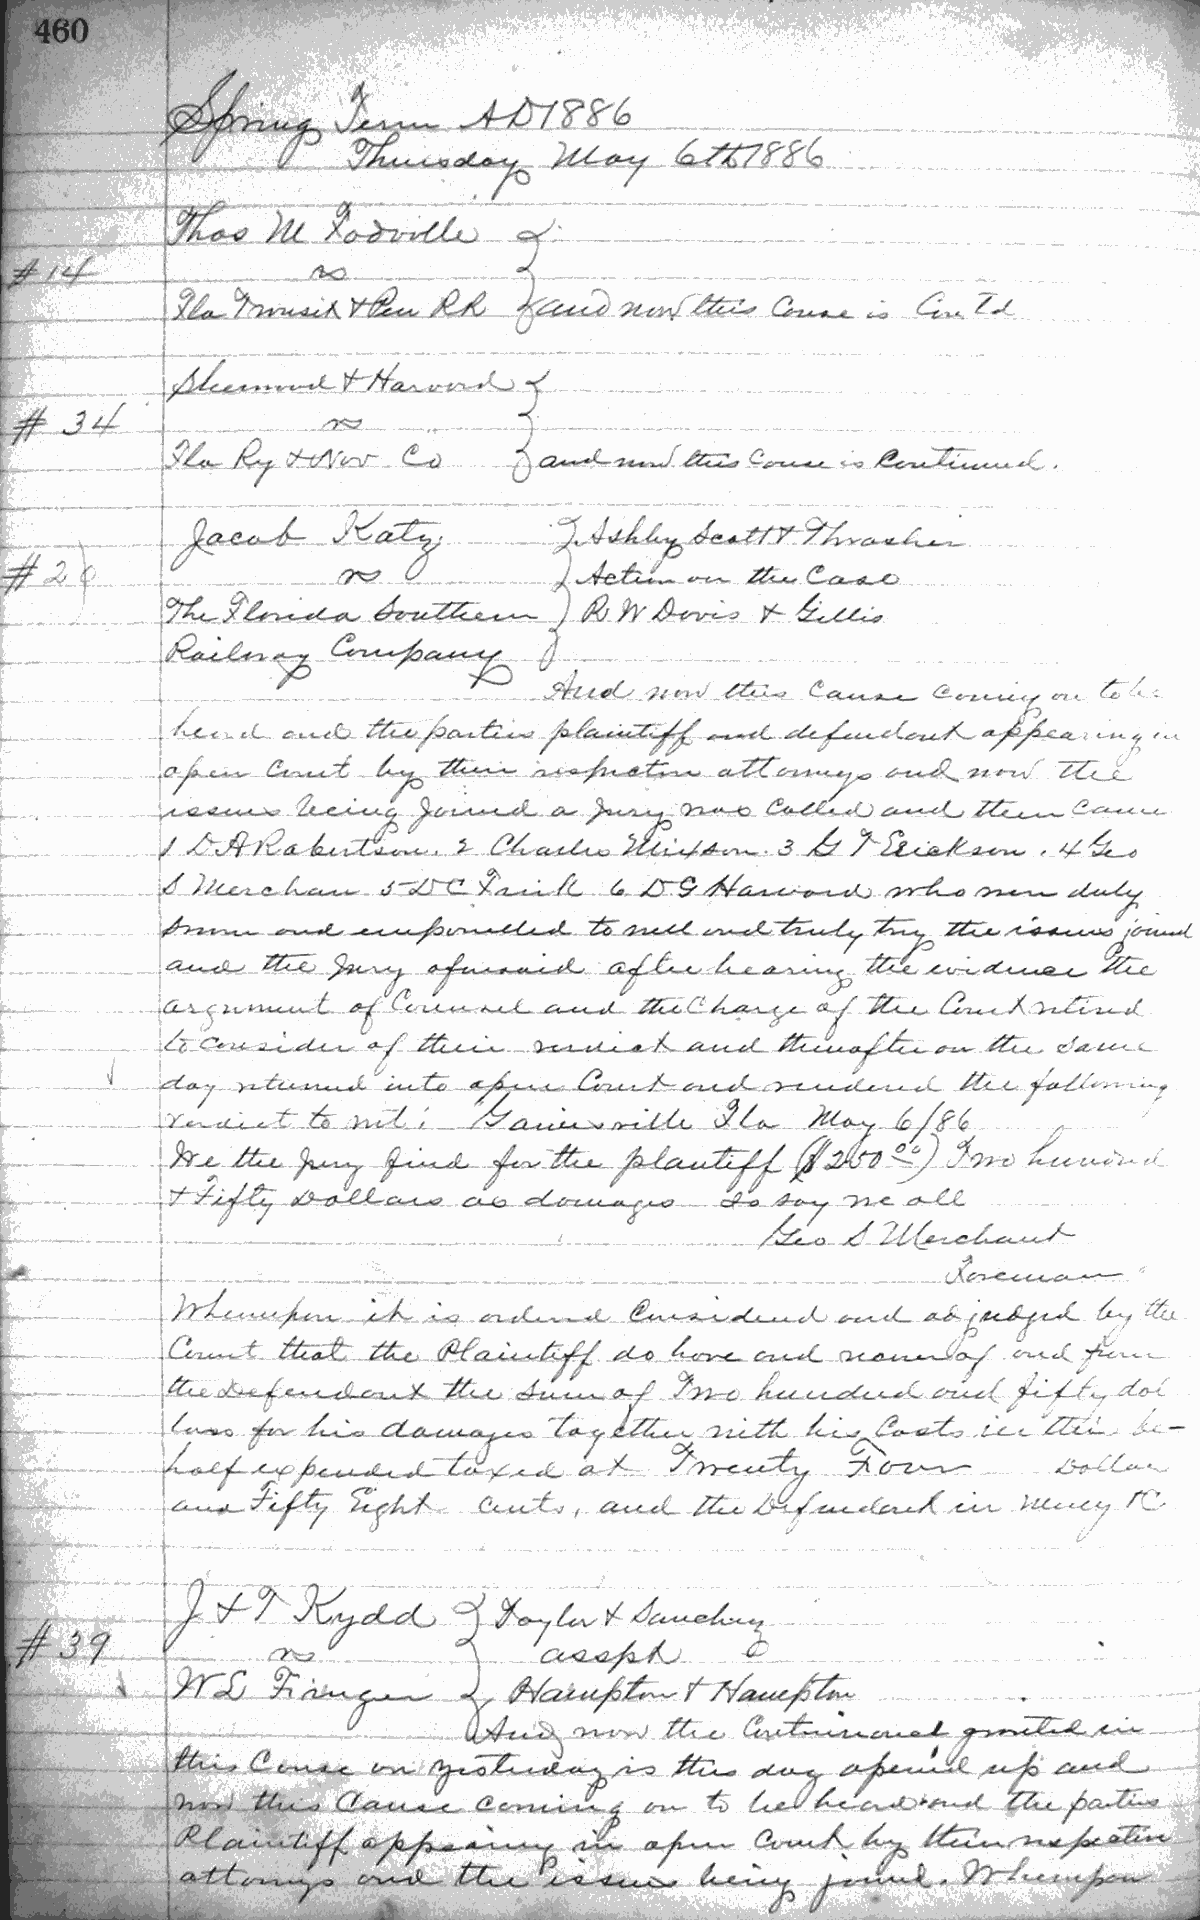 460
Spring Term AD 1886
Thursday May 6th 1886
Thos M
#14
vs
Fla Transit & Pen RR } and now this Cause is Con'td
& Harvord
# 34
vs
Fla Ry & Nav Co } and now this Cause is Continued.
Jacob Katz } Ashby Scott & Thrasher
#20
vs } Action on the Case
The Florida Southern } R W Davis & Gillis
Railway Company
And now this Cause coming on to be
heard and the parties plaintiff and defendant appearing in
open Court by their respective attorneys and now the
issues being joined a Jury was called and then came
1 D A Robertson. 2 Charles Mixson. 3 G T Erickson. 4 Geo
S Merchan 5 D C Frink 6 D G Harvord who were duly
sworn and empanelled to well and truly try the issues joined
and the Jury aforesaid after hearing the evidence the
argument of Counsel and the Charge of the Court retired
to consider of their verdict and thereafter on the same
day returned into open Court and rendered the following
verdict to wit: Gainesville Fla May 6/86
We the Jury find for the plantiff ($250 00) Two hundred
& Fifty Dollars as damages So say we all
Geo S Merchant
Foreman
Whereupon it is ordered Considered and adjudged by the
Court that the Plaintiff do have and recover of and from
the Defendant the sum of Two hundred and fifty dol
lars for his damages together with his Costs in this be-
half expended taxed at Twenty Four Dollars
and Fifty Eight cents, and the Defendant in mercy &C
J & T Kydd } Taylor & Sanchez
#39
vs } asspt
W L Finger } Hampton & Hampton
And now the Continuance granted in
this Cause on yesterday is this day opened up and
now this Cause coming on to be heard and the parties
Plaintiff appearing in open Court by their respective
attorneys and the issues being joined. Whereupon